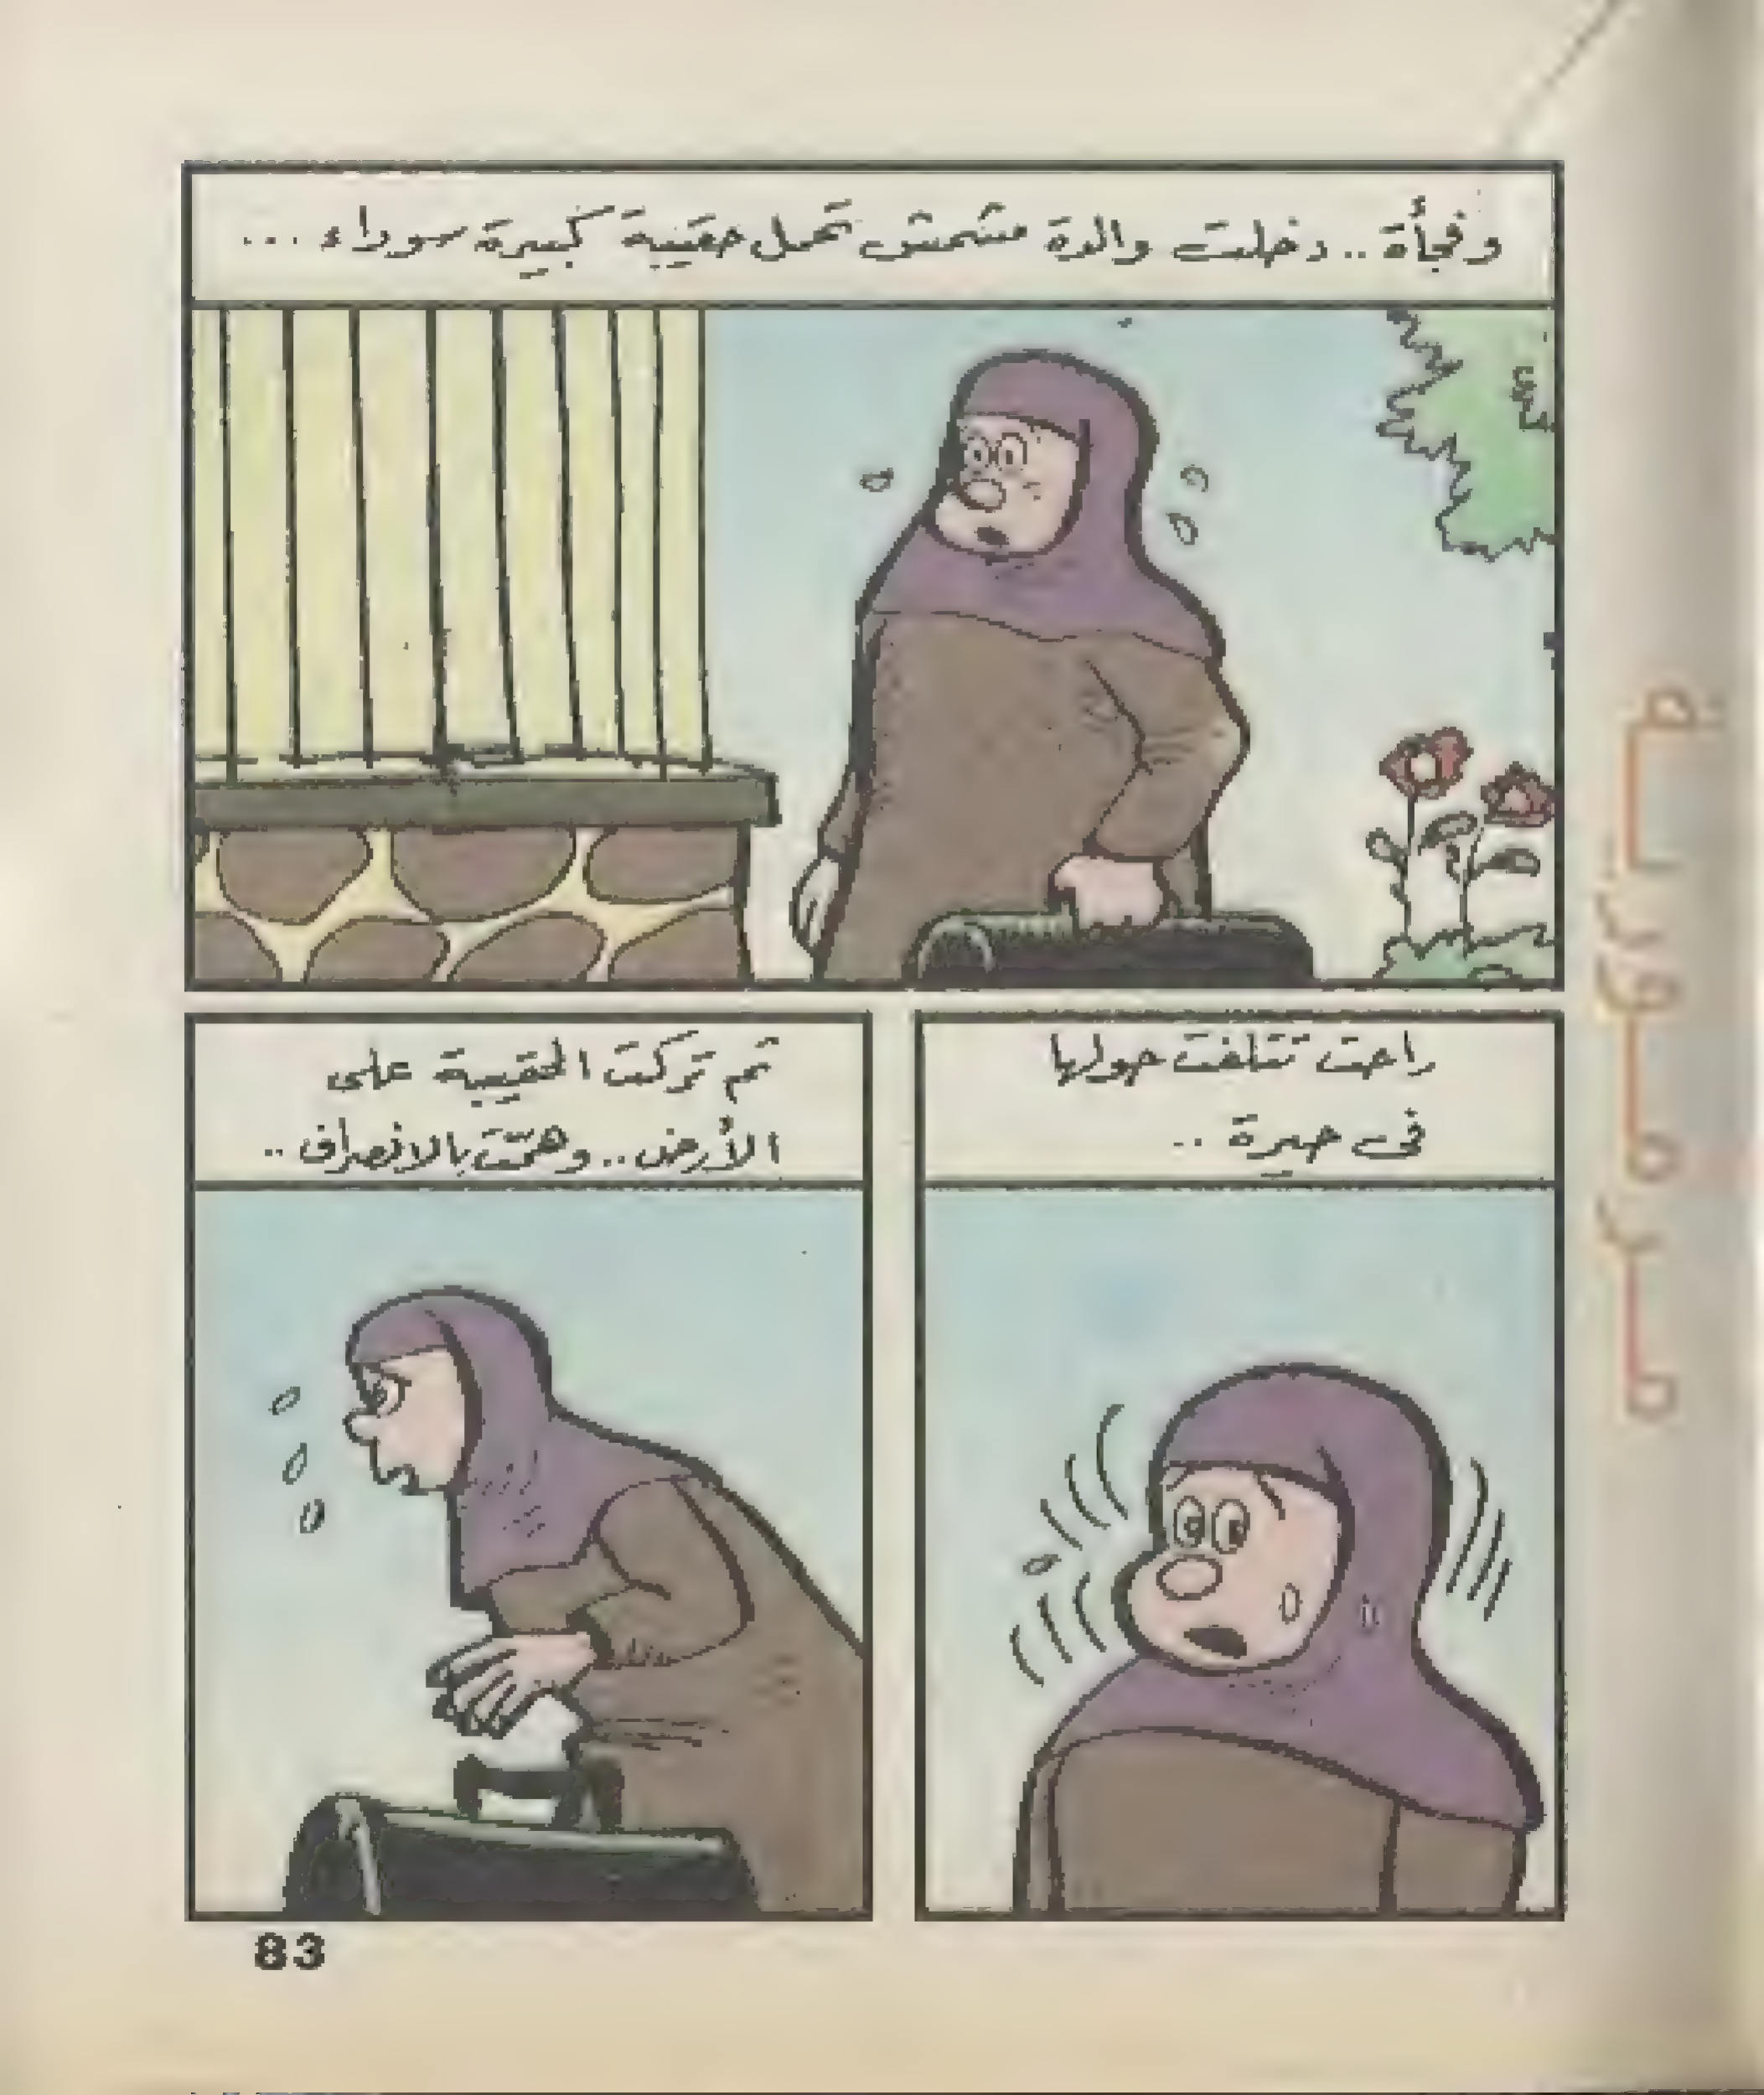 وفجأة.. دخلت والدة مشمش تحمل حقيبة كبيرة سوداء ...
راحت تتلفت حولها
فى حيرة ..
ثم تركت الحقيبة على
الأرض.. وهمّت بالانصراف ..
83